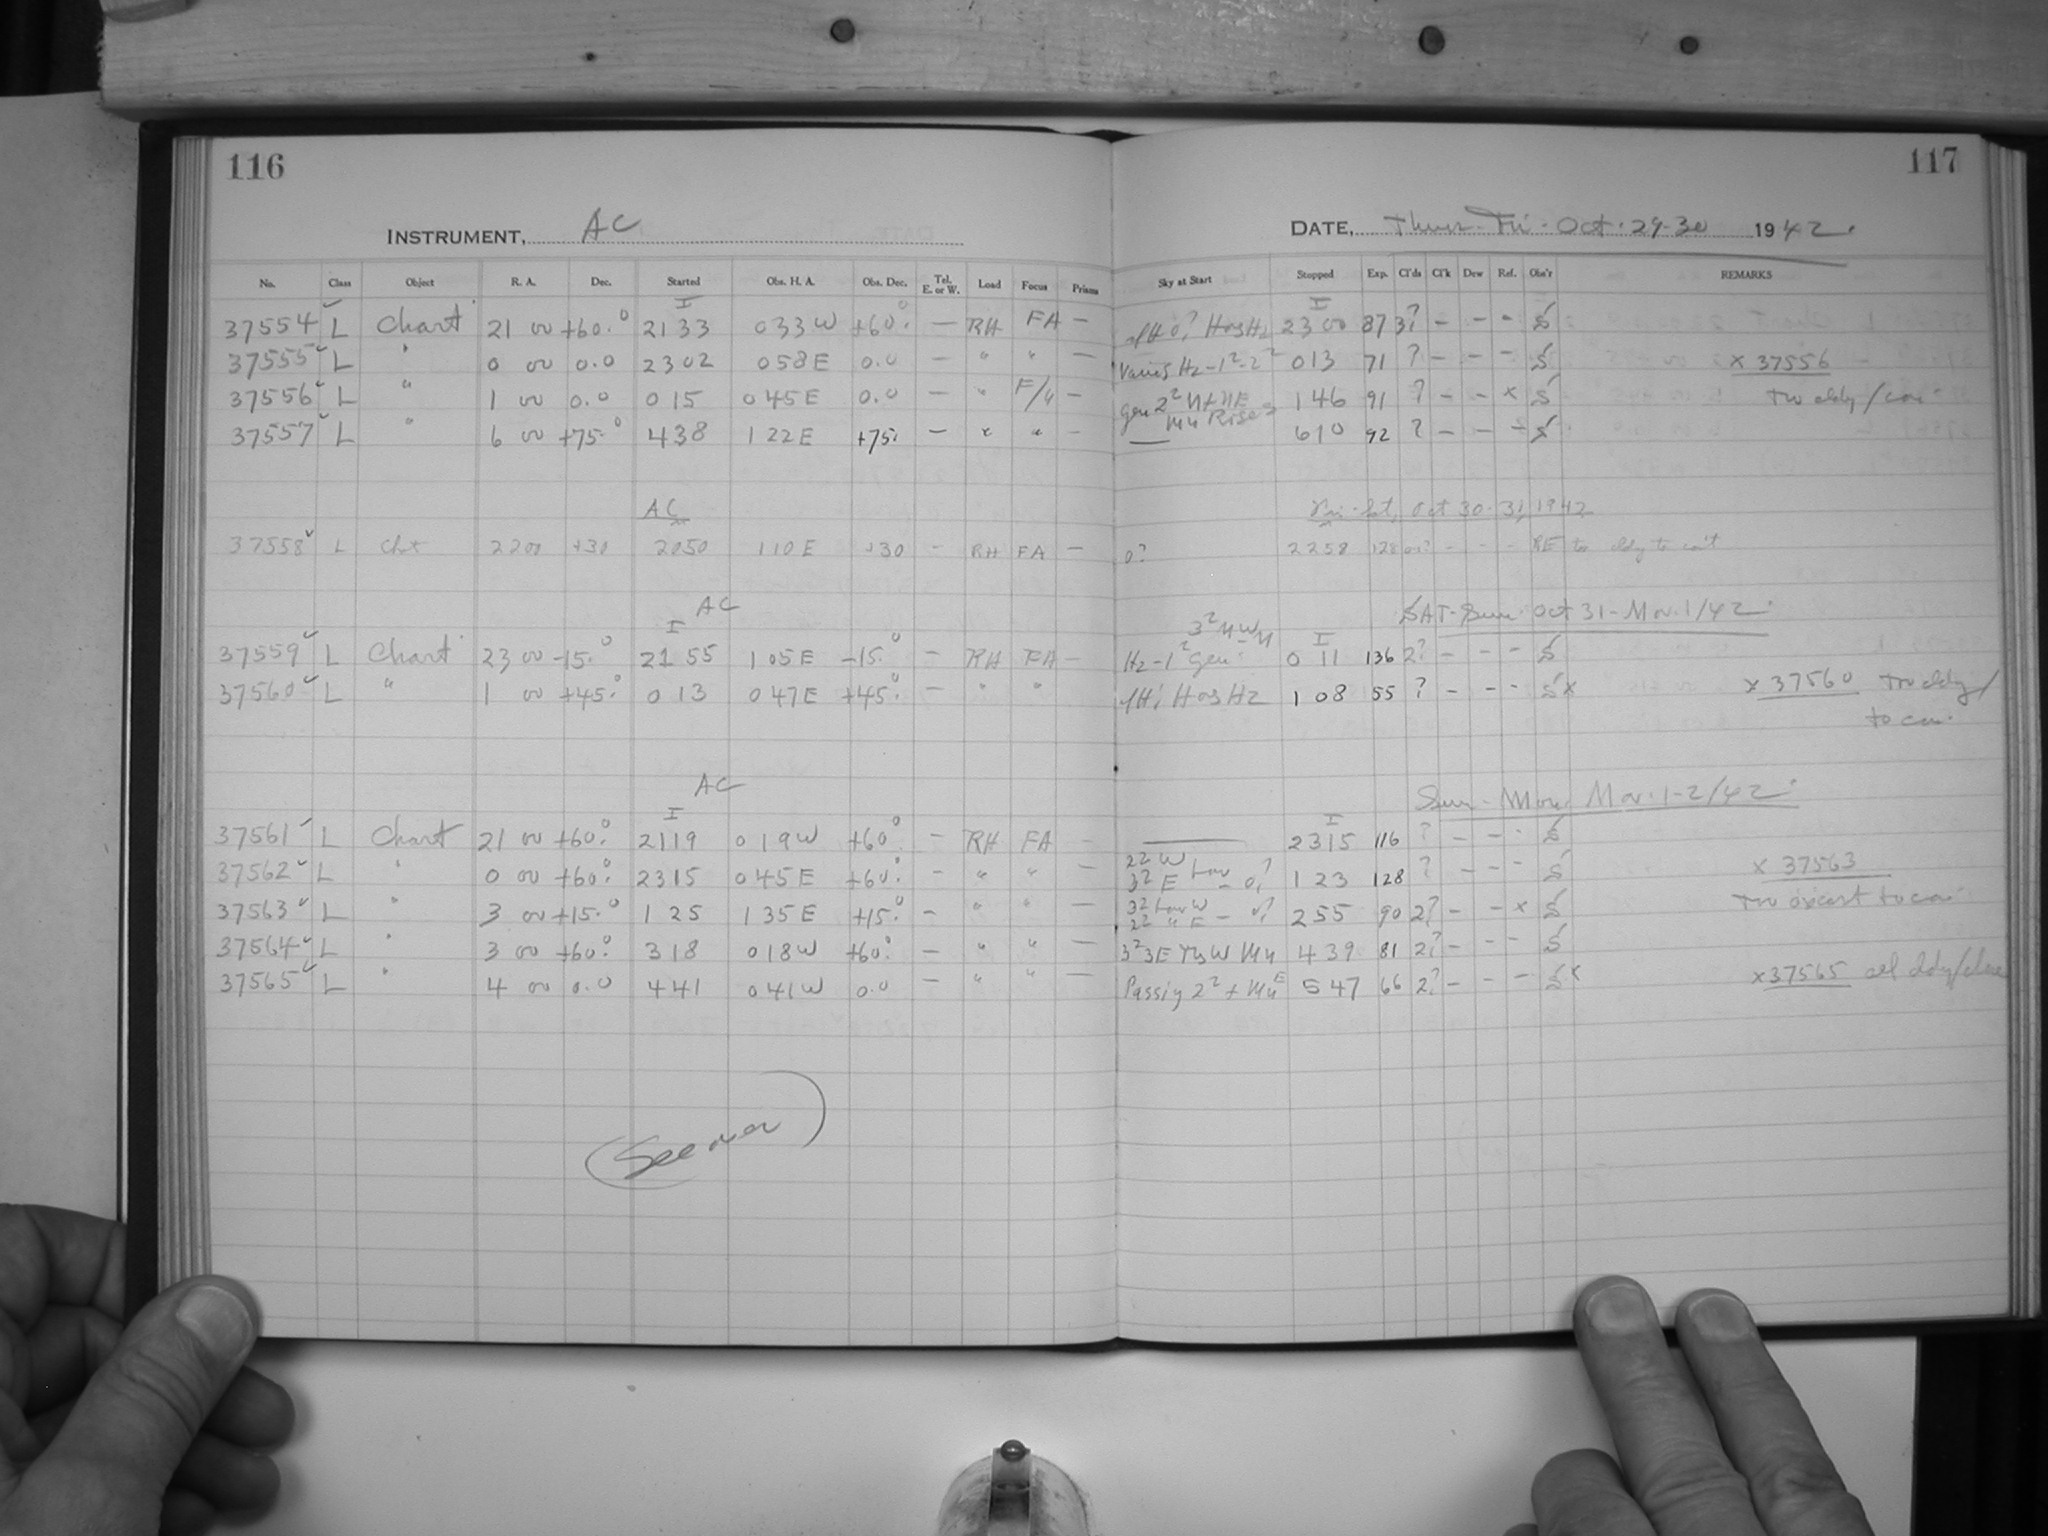 116
117
INSTRUMENT, AC
DATE, Thurs-Fri. Oct. 29-30 1942.
No. Class Object R. A. Dec. Started Obs. H. A. Obs. Dec. Tel. E. or W. Load Focus Prisms Sky at Start Stopped Exp. Cl'ds Cl'k Dew Ref. Obs'r REMARKS
I I
37554 ✓ L Chart 21 00 +60.° 2133 033W +60.° — RH FA — Hz 2300 87 3? - - - S
37555 ✓ L " 0 00 0.0 2302 058E 0.0 — " " — Hz-1²-2² 013 71 ? - - - S x 37556
37556 ✓ L " 1 00 0.0 015 045E 0.0 — " F/4 — gen 2² N+NE 146 91 ? - - x S
Mn Rises
37557 ✓ L " 6 00 +75.° 438 122E +75. — " " — — 610 92 ? - - - S
AC Oct 30-31, 1942
37558 ✓ L Cht 2200 +30 2050 110E +30 - RH FA — 0? 2258 128 - - - RE
AC SAT-Sun. Oct 31-Nov. 1/42.
I 3² I
37559 ✓ L Chart 23 00 -15.° 2155 105E -15.° — RH FA — Hz-1² gen. 0 11 136 2? - - - S
37560 ✓ L " 1 00 +45.° 013 047E +45.° — " " Hz 1 08 55 ? - - - S x x 37560
AC Sun-Mon. Nov. 1-2/42.
I I
37561 ✓ L Chart 21 00 +60.° 2119 019W +60.° — RH FA — — 2315 116 ? - - - S
37562 ✓ L " 0 00 +60.° 2315 045E +60.° — " " — 2² W 3² E Low - 0? 123 128 ? - - - S x 37563
37563 ✓ L " 3 00 +15.° 125 135E +15.° — " " — 3² Low W 2² " E - 0? 255 90 2? - - x S
37564 ✓ L " 3 00 +60.° 318 018W +60.° — " " — Mn 439 81 2? - - - S
37565 ✓ L " 4 00 0.0 441 041W 0.0 — " " — Passing 2² + Mn E 547 66 2? - - - S x x 37565
(See over)